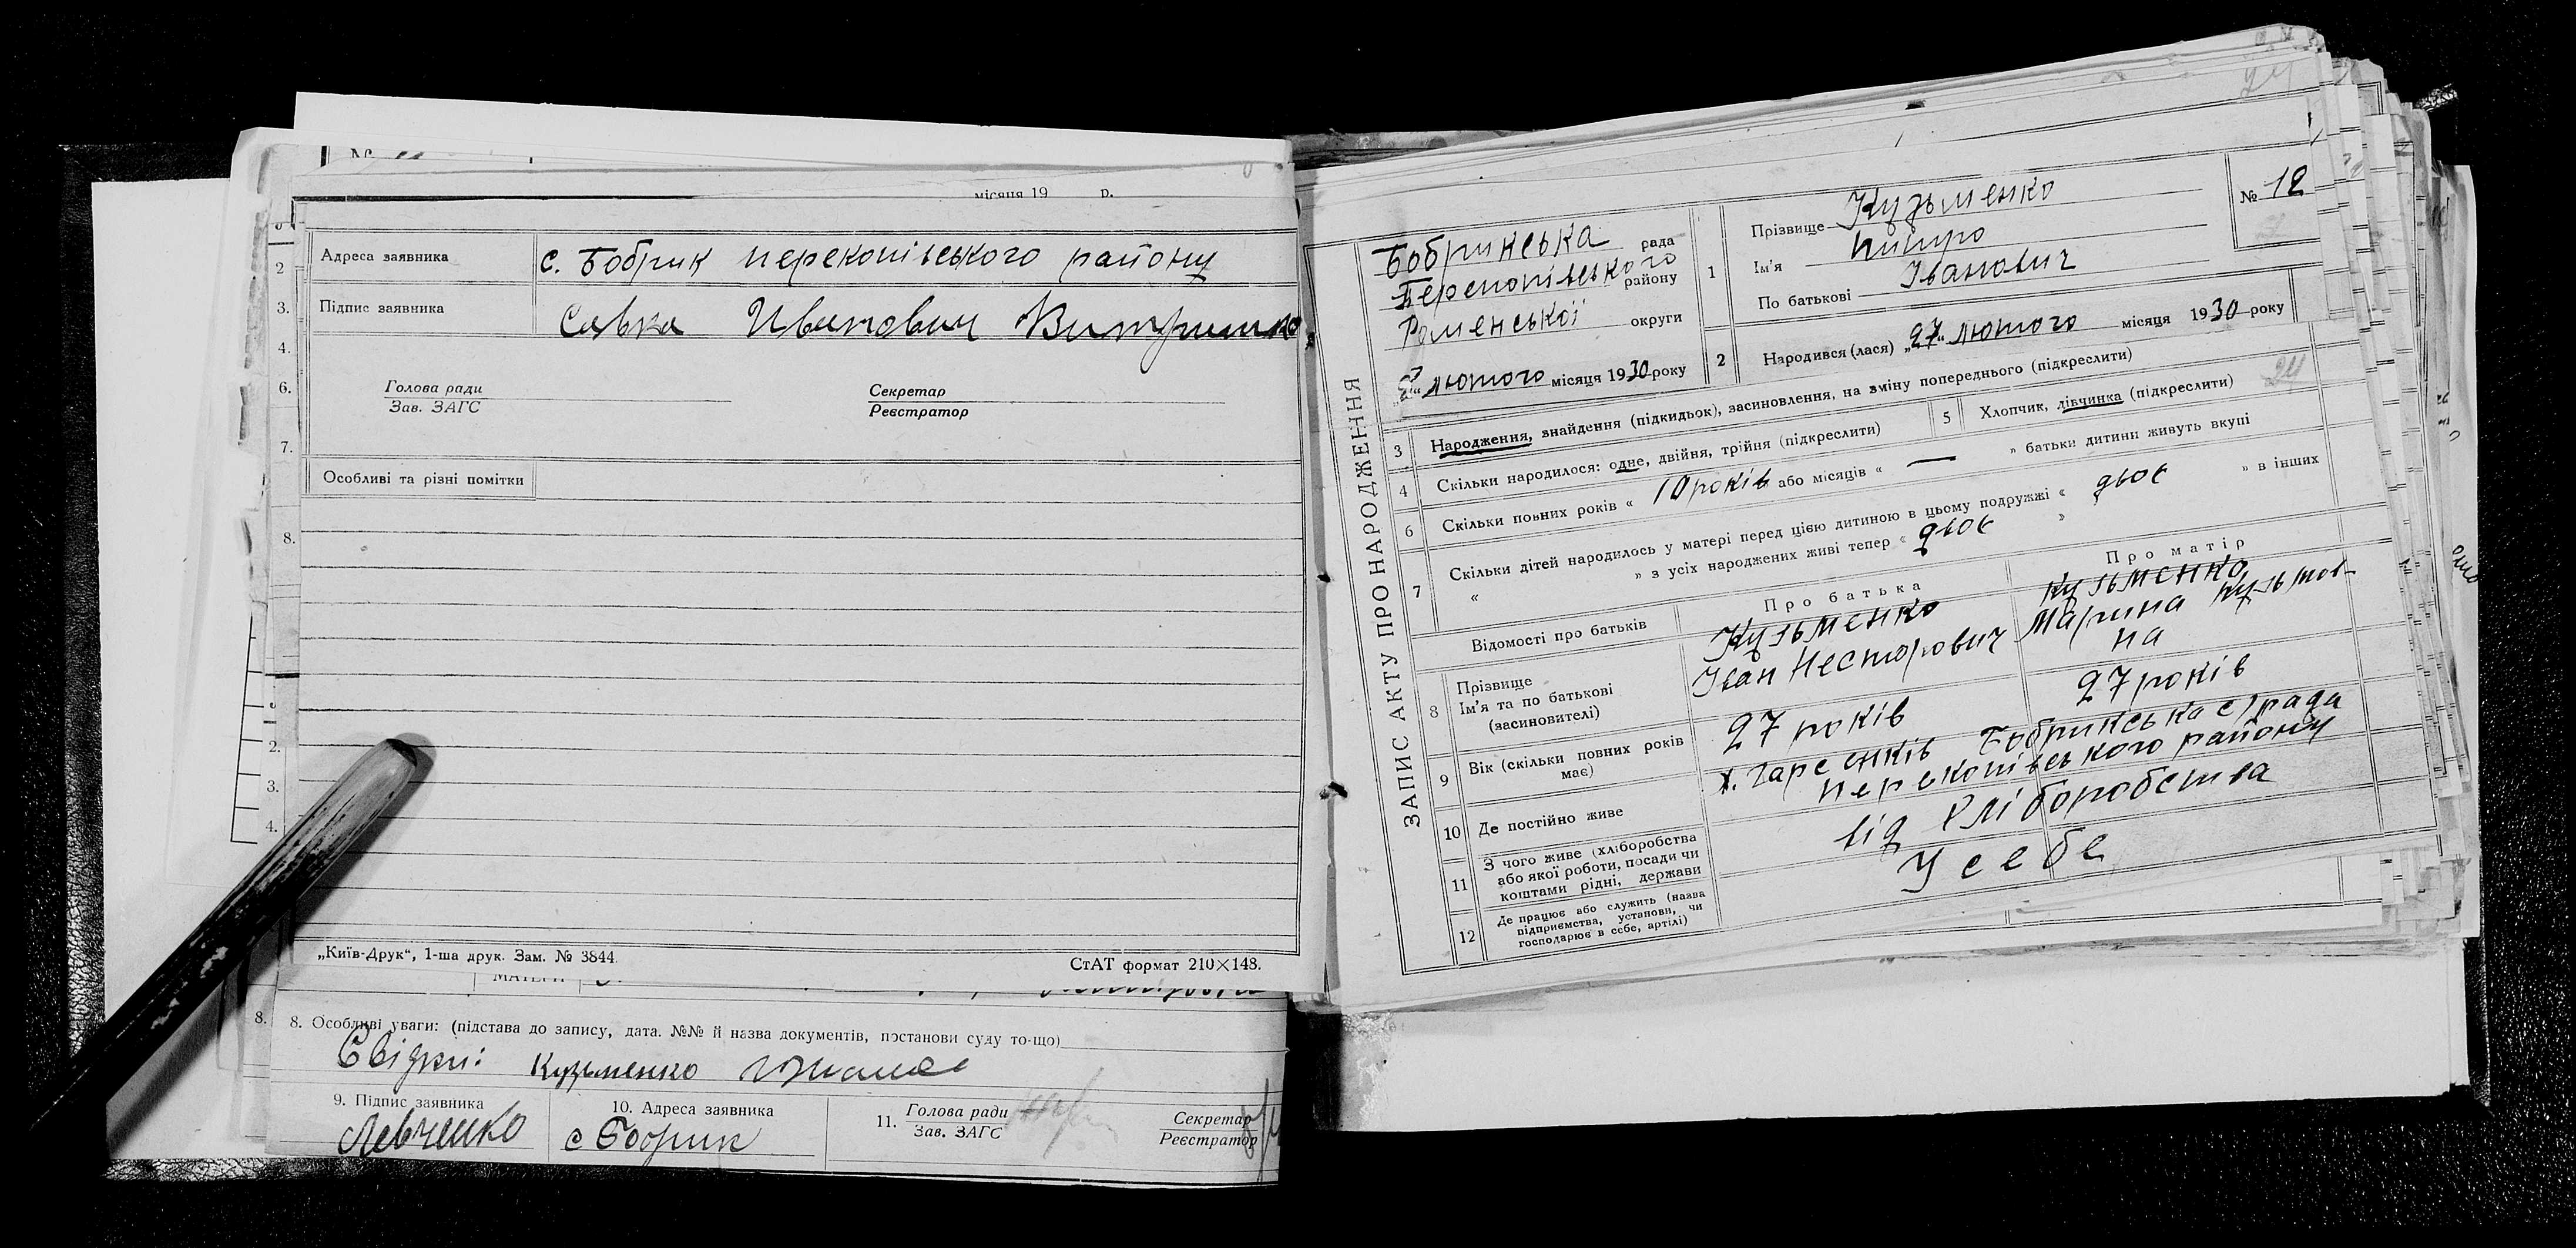 місяця 19 р.
Адреса заявника с. Бобрик перекопівського району
Підпис заявника Савка Иванович
Голова ради Секретар
Зав. ЗАГС Реєстратор
Особливі та різні помітки
2
3.
4.
6.
7.
8.
2.
3.
4.
„Київ-Друк“, 1-ша друк. Зам. № 3844. СтАТ формат 210×148.
8. 8. Особливі уваги: (підстава до запису, дата. №№ й назва документів, постанови суду то-що)
Свідки: Кузьменко
9. Підпис заявника 10. Адреса заявника 11. Голова ради Секретар
Зав. ЗАГС Реєстратор
Левченко с Бобрик
24
ЗАПИС АКТУ ПРО НАРОДЖЕННЯ
Бобринська рада
Перекопівського району
Роменської округи
люмого місяця 1930 року
1 Прізвище Кузьменко
Ім'я
По батькові Іванович
№ 12
2 Народився (лася) „27“ лютого місяця 1930 року
3 Народження, знайдення (підкидьок), засиновлення, на зміну попереднього (підкреслити)
24
4 Скільки народилося: одне, двійня, трійня (підкреслити) 5 Хлопчик, дівчинка (підкреслити)
6 Скільки повних років « 10 років або місяців « — » батьки дитини живуть вкупі
7 Скільки дітей народилось у матері перед цією дитиною в цьому подружжі « двоє » в інших
« » з усіх народжених живі тепер « двоє »
Відомості про батьків Про батька Про матір
8 Прізвище Кузьменко Кузьменко
Ім'я та по батькові Іван Несторович Марина Кузьмов-
(засновителі) на
9 Вік (скільки повних років має) 27 років 27 років
10 Де постійно живе х. Бобринська с/рада
перекопівського району
11 З чого живе (хліборобства або якої роботи, посади чи коштами рідні, держави від хліборобства
12 Де працює або служить (назва підприємства, установи, чи господарює в себе, артілі) У себе